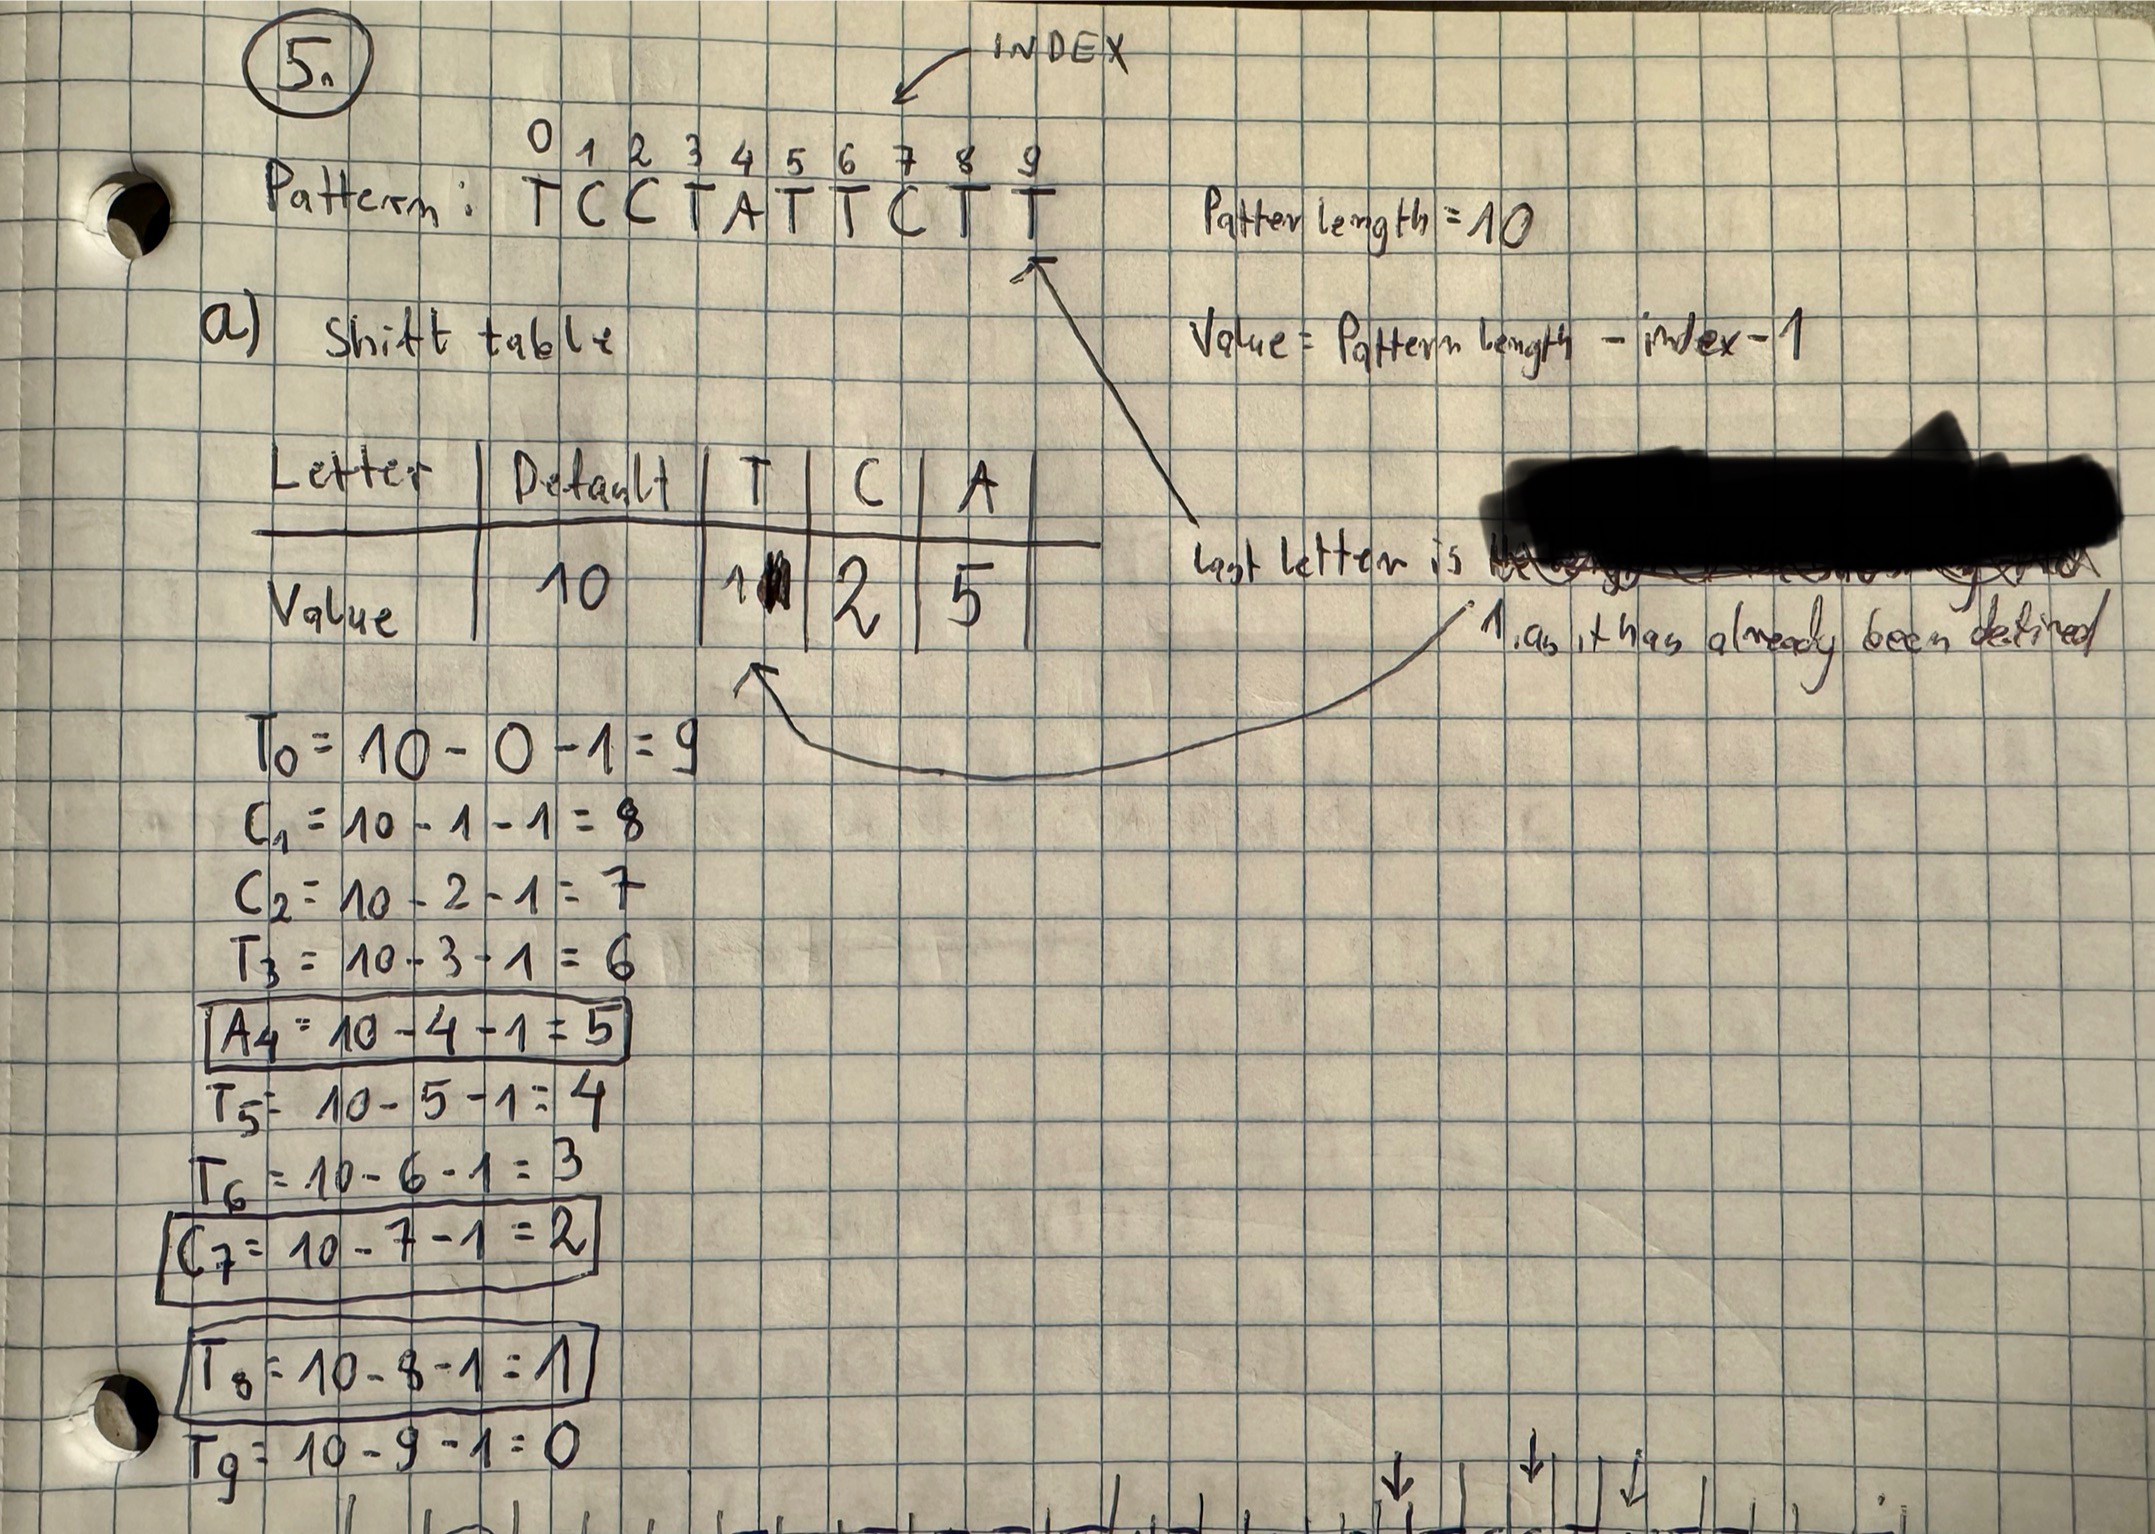 5.
INDEX
0 1 2 3 4 5 6 7 8 9
Pattern: T C C T A T T C T T
Patter length = 10
a) Shift table
Value = Pattern length - index - 1
Letter | Default | T | C | A |
Value | 10 | 1 | 2 | 5 |
last letter is
1, as it has already been defined
T0 = 10 - 0 - 1 = 9
C1 = 10 - 1 - 1 = 8
C2 = 10 - 2 - 1 = 7
T3 = 10 - 3 - 1 = 6
A4 = 10 - 4 - 1 = 5
T5 = 10 - 5 - 1 = 4
T6 = 10 - 6 - 1 = 3
C7 = 10 - 7 - 1 = 2
T8 = 10 - 8 - 1 = 1
T9 = 10 - 9 - 1 = 0